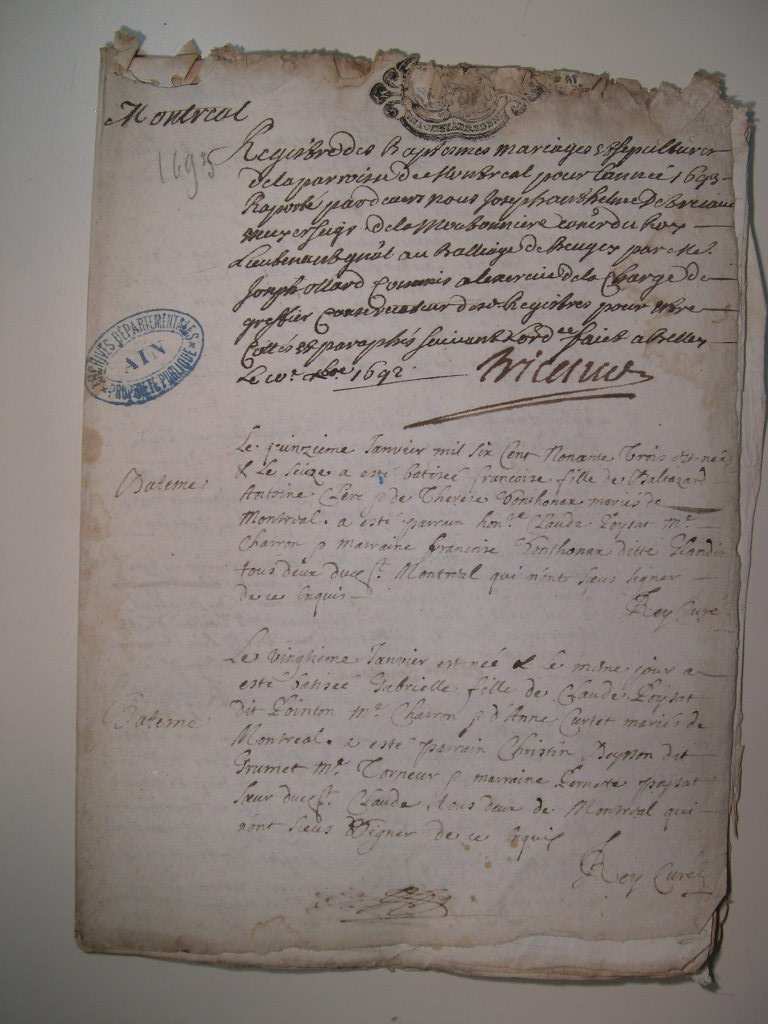 Montreal
1693
Registre des Baptesmes mariages et sepultures
de la parroisse de Montreal pour lannée 1693
Raporté pardevant nous Joseph anthelme
de la Moubonniere Con.er du Roy
Lieutenant gnāl au Balliage de Beugey par Me.
Joseph ollard Commis a lexercice de la Charge de
greffier Conservateur desd. Registres pour estre
Cottés et paraphés suivant Lord.ce faict a Belley
Le 10.e xbre 1692
ARCHIVES DÉPARTEMENTALES
AIN
PROPRIÉTÉ PUBLIQUE
Bateme
Le quinzieme Janvier mil six cent nonante trois est née
& le seize a esté batisée francoise fille de Baltazard
Antoine Clerc & de Therese mariés de
Montreal. a esté parrain hon.e Claude Poysat M.e
Charron & marraine francoise ditte
tous deux dud.t Montreal qui n'ont sceus signer
de ce enquis
Rey Curé
Bateme
Le vingtieme Janvier est née & le mesme jour a
esté batisée Gabrielle fille de Claude Poysat
dit Pointon M.e Charron & d'Anne Curtet mariés de
Montreal. a esté parrain Christin dit
Grumet M.e Torneur & marraine poysat
sœur dud.t Claude tous deux de Montreal qui
n'ont sceus signer de ce enquis
Rey Curé